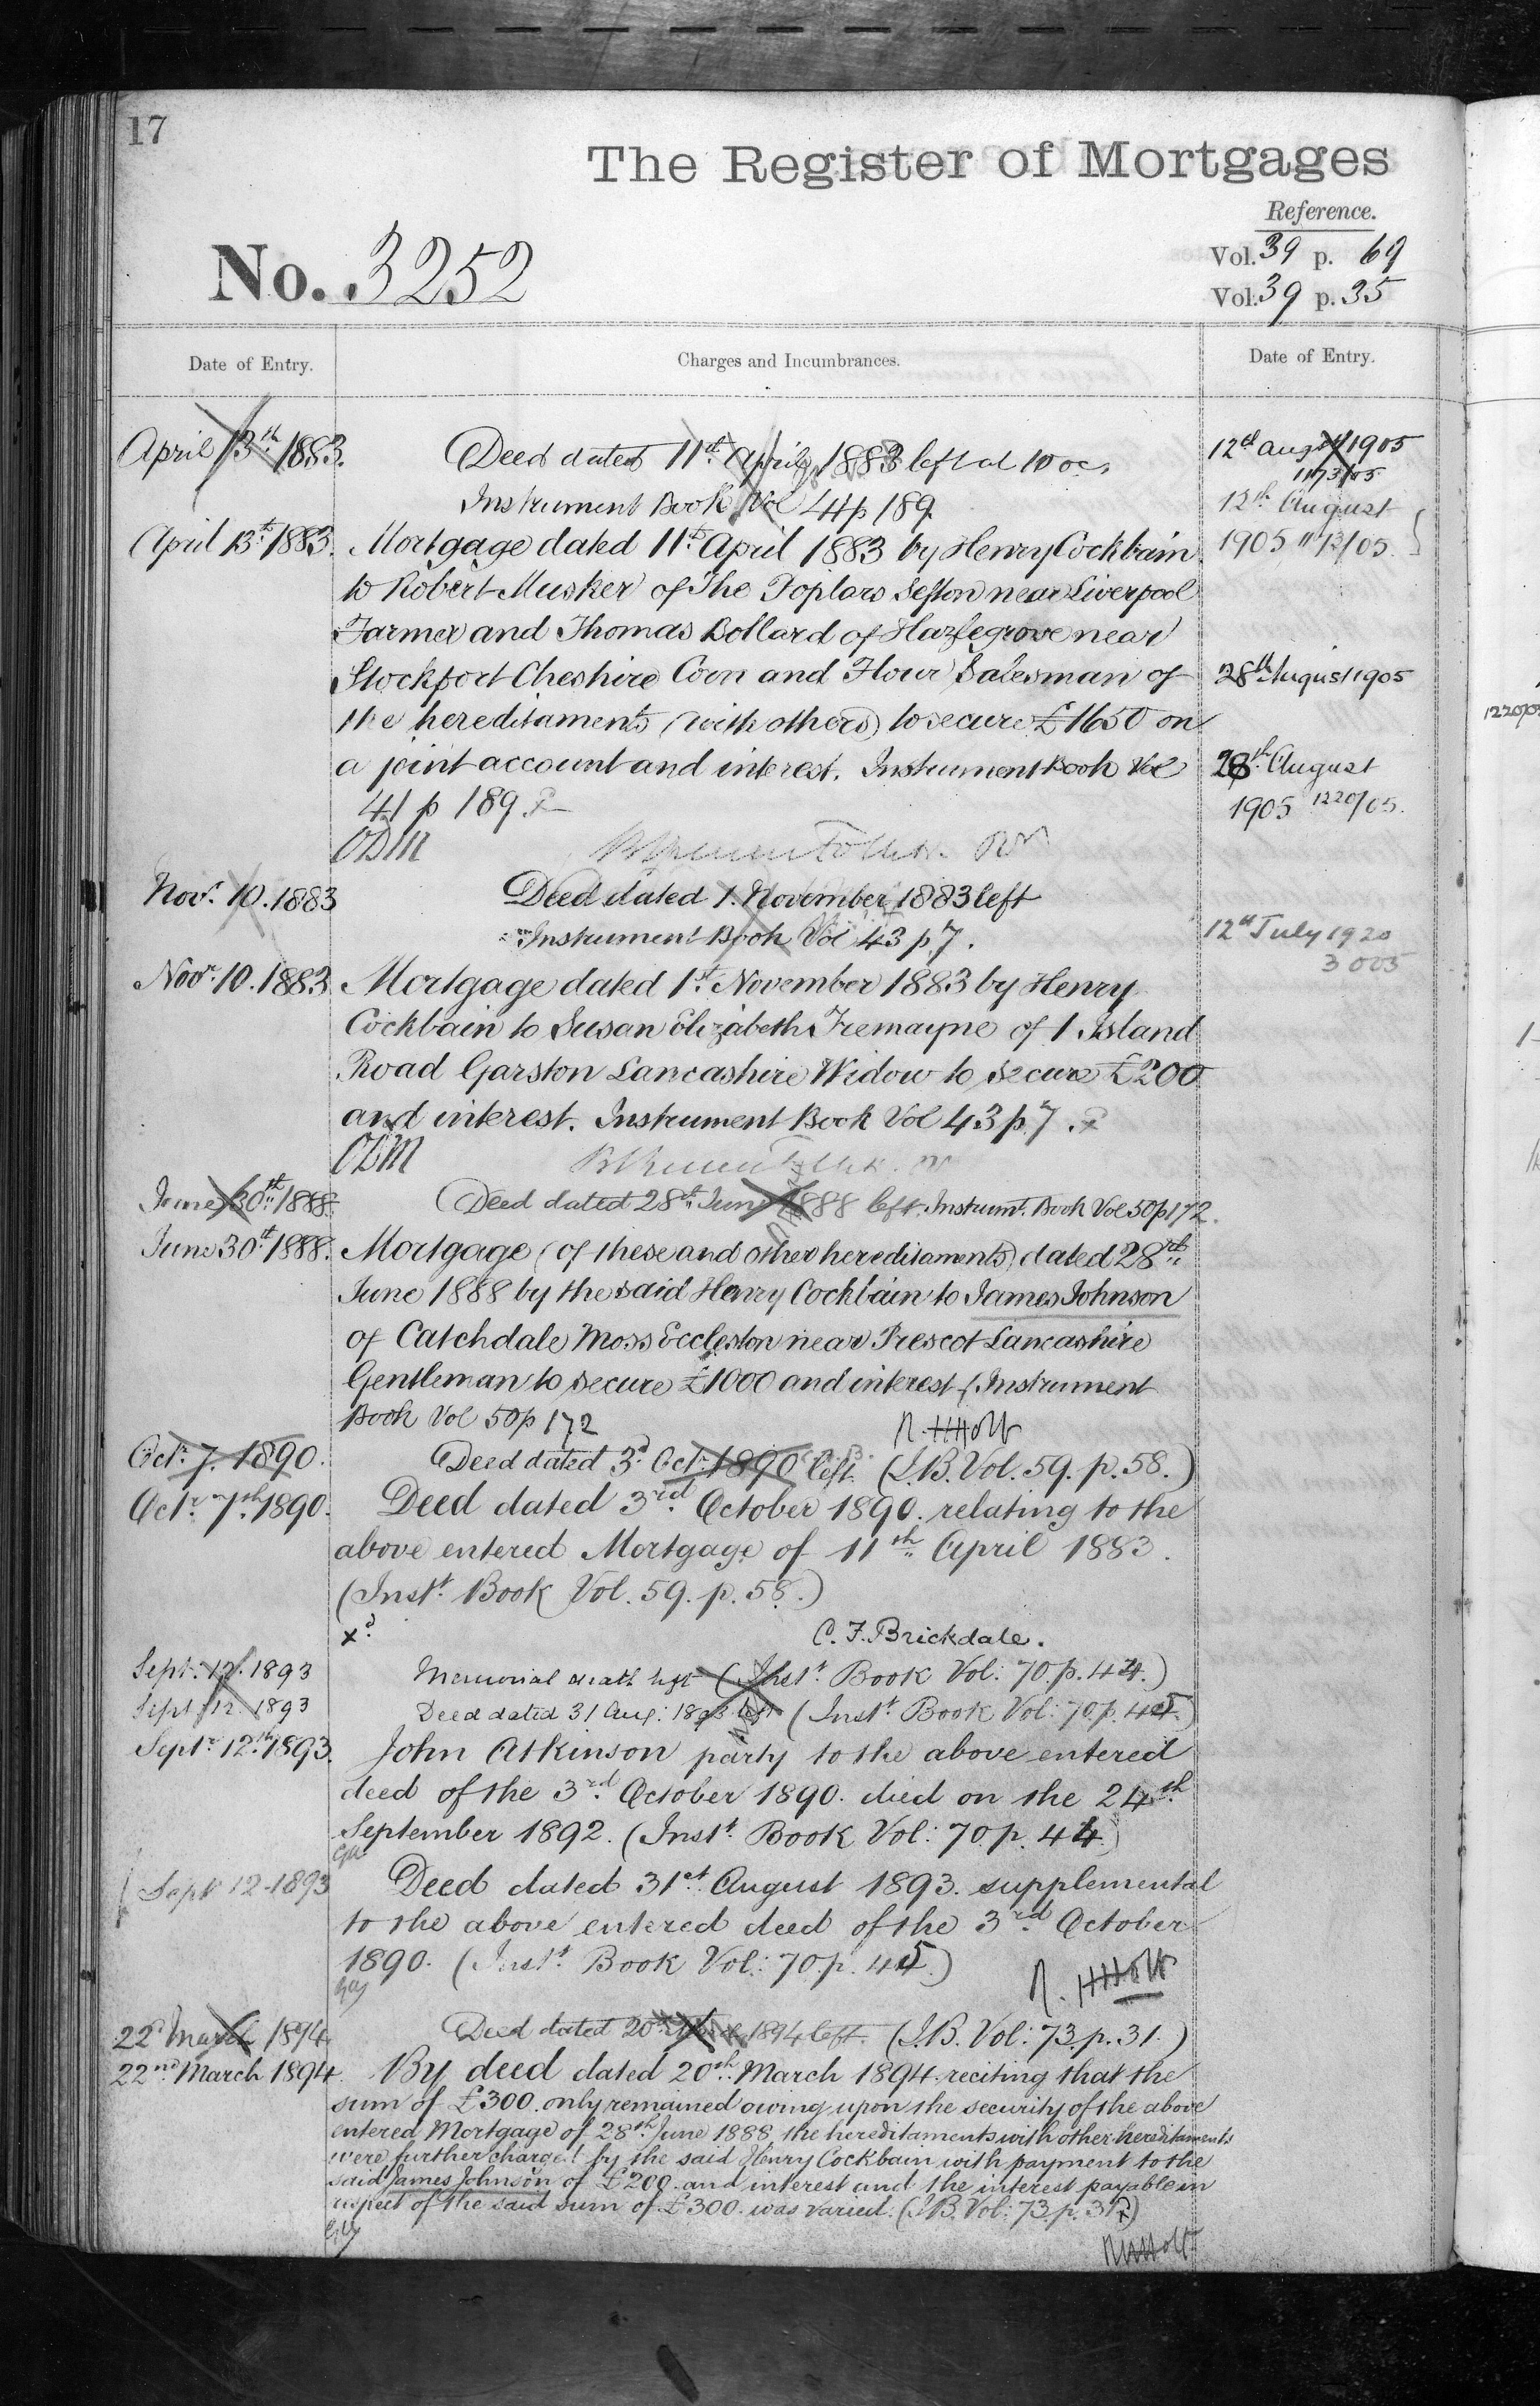 17
The Register of Mortgages
Reference.
No. 3252
Vol. 39 p. 69
Vol. 39 p. 35
Date of Entry.
Charges and Incumbrances.
Date of Entry.
April 13th 1883.
Deed dated 11th April 1883 left at 10 oc.
12th August 1905
1173/05
Instrument Book Vol 41 p 189
12th August
April 13th 1883.
Mortgage dated 11th April 1883 by Henry Cockbain
1905 1173/05.
to Robert Musker of The Poplars Sefton near Liverpool
Farmer and Thomas Bollard of Hazlegrove near
Stockport Cheshire Corn and Flour Salesman of
28th August 1905
the hereditaments (with others) to secure £1650 on
a joint account and interest. Instrument Book Vol
28th August
41 p 189.
1905 1220/05.
Nov. 10. 1883
Deed dated 1. November 1883 left
Instrument Book Vol 43 p 7.
12th July 1920
3005
Novr. 10. 1883
Mortgage dated 1st November 1883 by Henry
Cockbain to Susan Elizabeth Tremayne of 1 Island
Road Garston Lancashire Widow to secure £200
and interest. Instrument Book Vol 43 p. 7.
June 30th 1888.
Deed dated 28th June 1888 left. Instrumt. Book Vol 50 p 172.
June 30th 1888.
Mortgage (of these and other hereditaments) dated 28th
June 1888 by the said Henry Cockbain to James Johnson
of Catchdale Moss Eccleston near Prescot Lancashire
Gentleman to secure £1000 and interest (Instrument
Book Vol 50 p 172
R. H Holt
Octr. 7. 1890.
Deed dated 3d Octr. 1890 left. (I.B. Vol. 59. p. 58.)
Octr. 7th 1890.
Deed dated 3rd October 1890. relating to the
above entered Mortgage of 11th April 1883.
(Instt. Book Vol. 59. p. 58.)
C. F. Brickdale.
Sept. 12. 1893
Memorial death left (Instt. Book Vol: 70. p. 44.)
Sept 12. 1893
Deed dated 31 Aug: 1893 left (Instt. Book Vol: 70. p. 45)
Septr. 12th 1893.
John Atkinson party to the above entered
deed of the 3rd October 1890. died on the 24th
September 1892. (Instt. Book Vol: 70. p. 44)
Sept 12 - 1893
Deed dated 31st August 1893. supplemental
to the above entered deed of the 3rd October
1890. (Instt. Book Vol: 70. p. 45.)
R. H Holt
22d March 1894
Deed dated 20th March 1894 left. (I.B. Vol: 73. p. 31.)
22nd March 1894.
By deed dated 20th March 1894. reciting that the
sum of £300. only remained owing upon the security of the above
entered Mortgage of 28th June 1888 the hereditaments with other hereditaments
were further charged by the said Henry Cockbain with payment to the
said James Johnson of £200. and interest and the interest payable in
respect of the said sum of £300. was varied. (I.B. Vol: 73 p. 31)
R H Holt